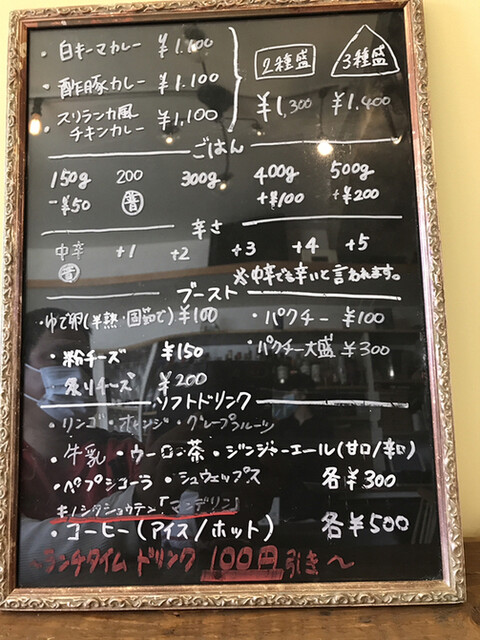 ・白キーマカレー ¥1.100
・酢豚カレー ¥1.100
・スリランカ風
チキンカレー ¥1,100
2種盛 3種盛
¥1,300 ¥1.400
ごはん
150g 200 300g 400g 500g
-¥50 普 +¥100 +¥200
辛さ
中辛 +1 +2 +3 +4 +5
普
※中辛でも辛いと言われます。
ブースト
・ゆで卵(半熟・固茹で) ¥100 ・パクチー ¥100
・粉チーズ ¥150 ・パクチー大盛 ¥300
・炙りチーズ ¥200
ソフトドリンク
・リンゴ・オレンジ・グレープフルーツ
・牛乳・ウーロン茶・ジンジャーエール(甘口/辛口)
・ペプシコーラ・シュウェップス 各¥300
キノシタショウテン「マンデリン」
・コーヒー(アイス/ホット) 各¥500
〜ランチタイム ドリンク 100円引き〜